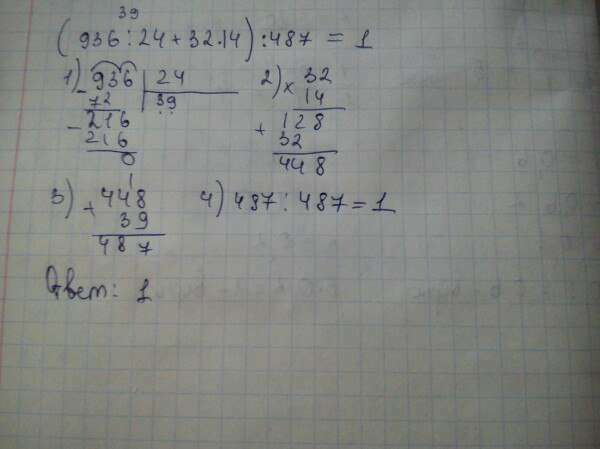 39
(936:24+32·14):487=1
1) 936 | 24
72 39
- 216
216
0
2) × 32
14
+ 128
32
448
3) + 448
39
487
4) 487:487=1
Ответ: 1